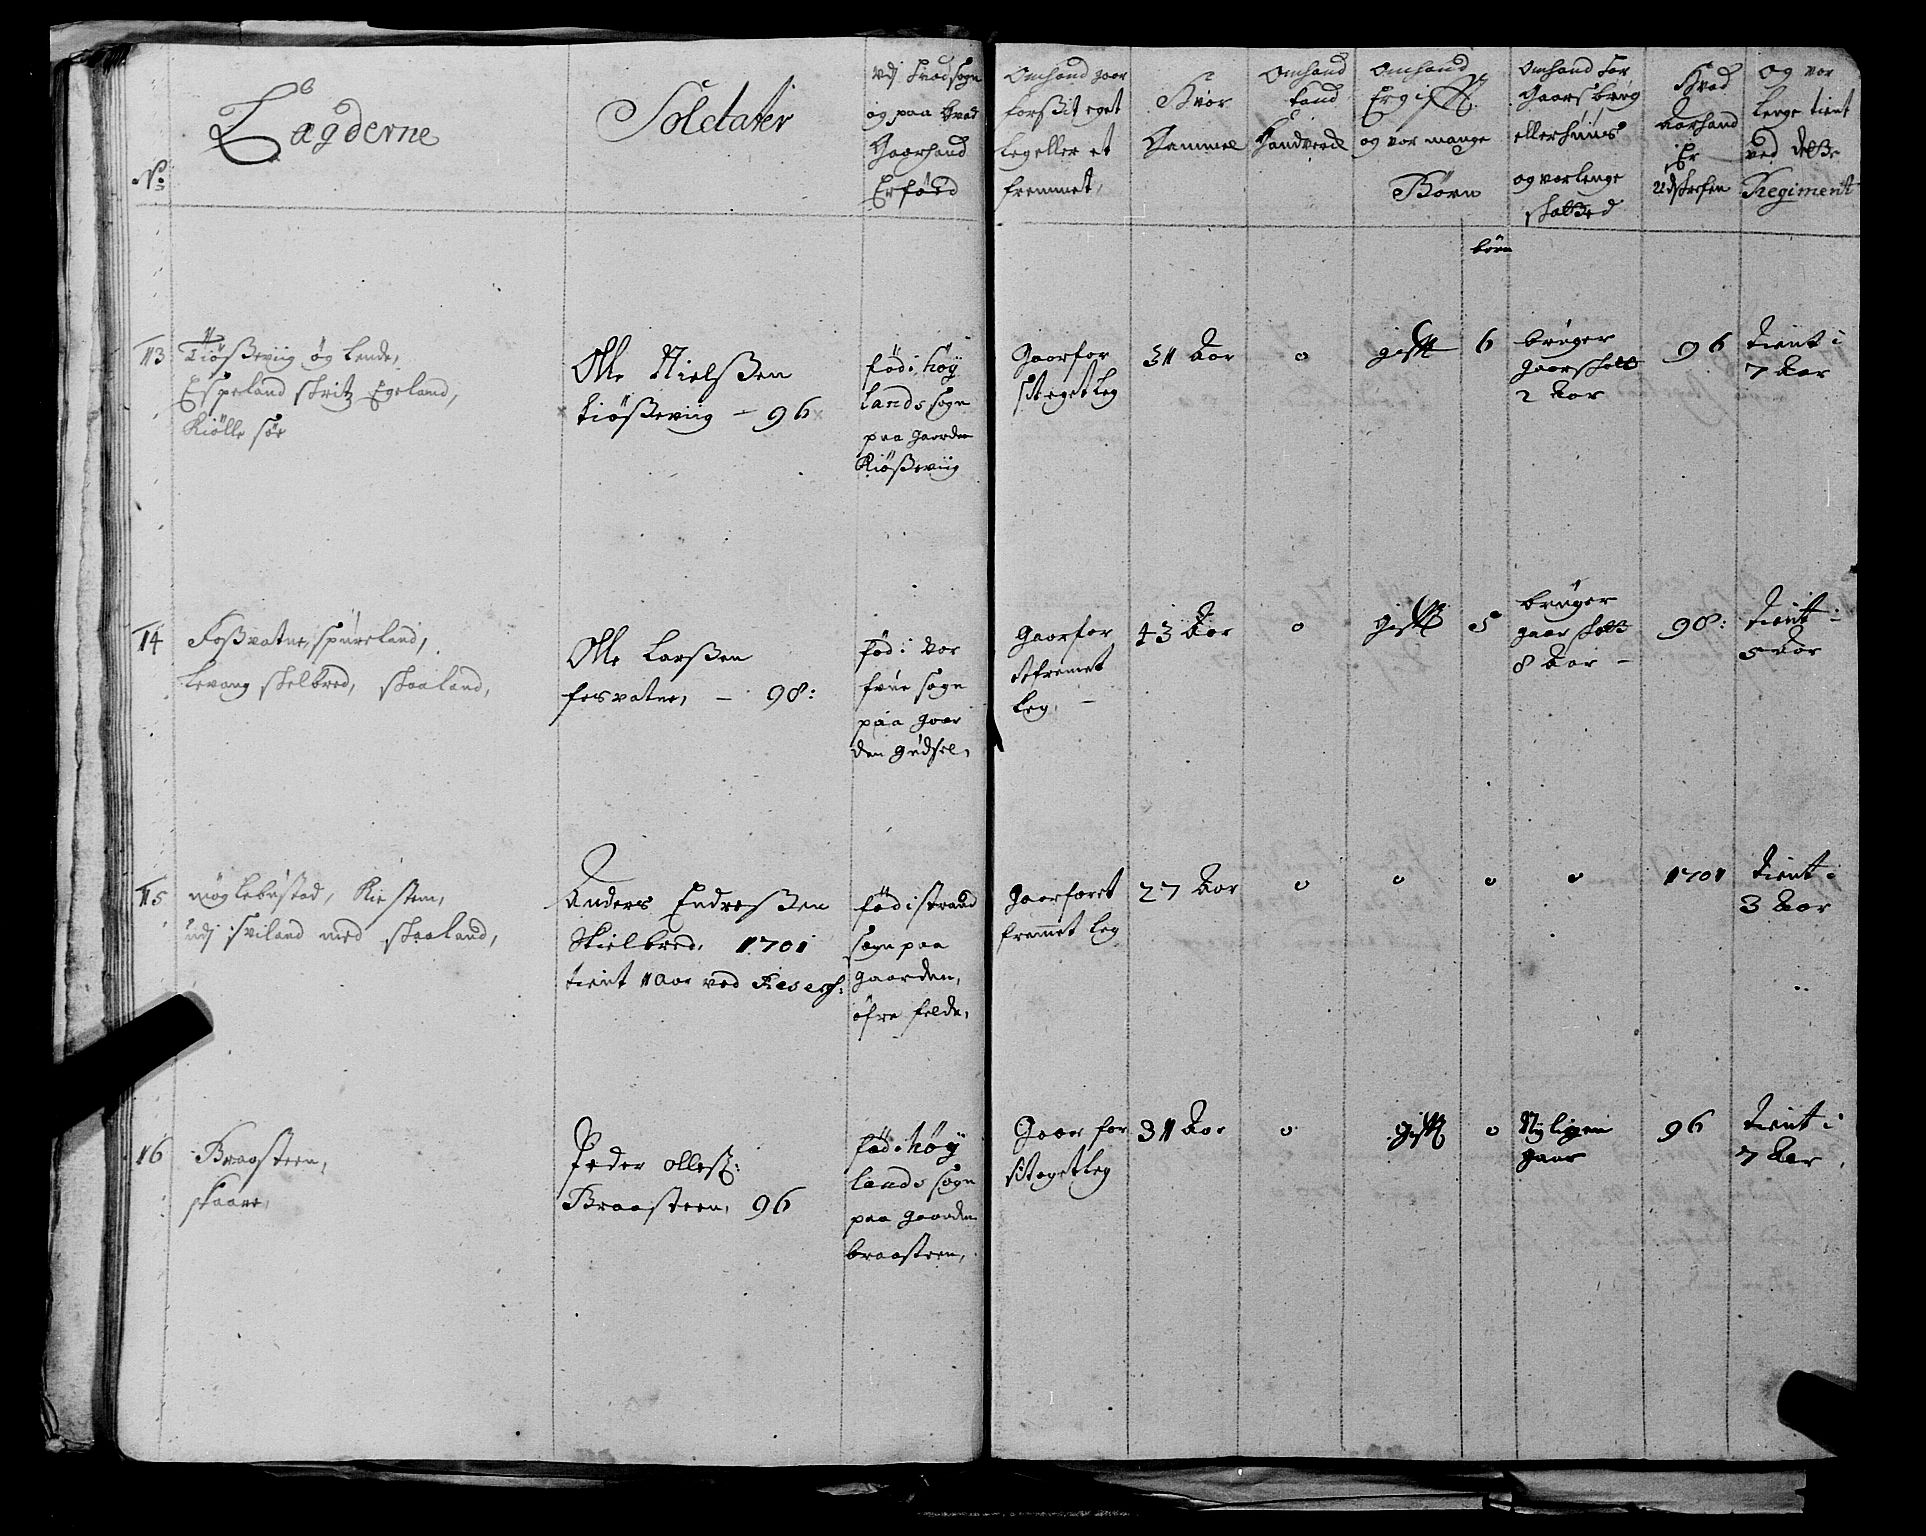 No
Lægderne
Soldater
Udj hvad sogn
og paa hvad
Gaar hand
Er föed
Om hand gaar
for sit eget
leg eller et
fremmet,
Hvor
Gammel
Om hand
kand
Handverck
Om hand
Er gift
og vor mange
Börn
Om hand har
Gaars brug
eller huus
og vor lenge
Hvad
Aar hand
Er
Udskrefven
og vor
lenge tient
ved dette
Regiment
börn
113
Tiößeviig og Lende,
Espeland skritz Egeland,
Kiölle sör
Olle Nielßen
tiößeviig – 96
föd i höÿ
lands sogn
paa gaarden
Kiößeviig
Gaar for
sit eget leg
31 Aar
0
gift
6
bruger
gaars
2 Aar
96
tient i
7 Aar
114
Foßvatne, spureland,
Levang skelbred, skaaland,
Olle Larßen
fosvatne, – 98:
föd i vor
frue sogn
paa gaar
den gudsel,
Gaar for
et fremet
leg, –
43 Aar
0
gift
5
bruger
gaar
8 Aar –
98:
tient i
5 Aar
115
möglebustad, Riesten,
udj sviland med skaaland,
Anders Endreßen
Skielbred, 1701
tient 1 Aar ved
föd i strand
sogn paa
gaarden,
öfre felde,
Gaar for et
fremmet leg
27 Aar
0
0
0
0
1701
tient i
3 Aar
116
Braasteen,
skaare,
Peder olleß:
Braasteen, 96
föd i höÿ
lands sogn
paa gaarden
braasteen,
Gaar for
sit eget leg
31 Aar
0
gift
0
Nÿligen
gaar
96
tient i
7 Aar